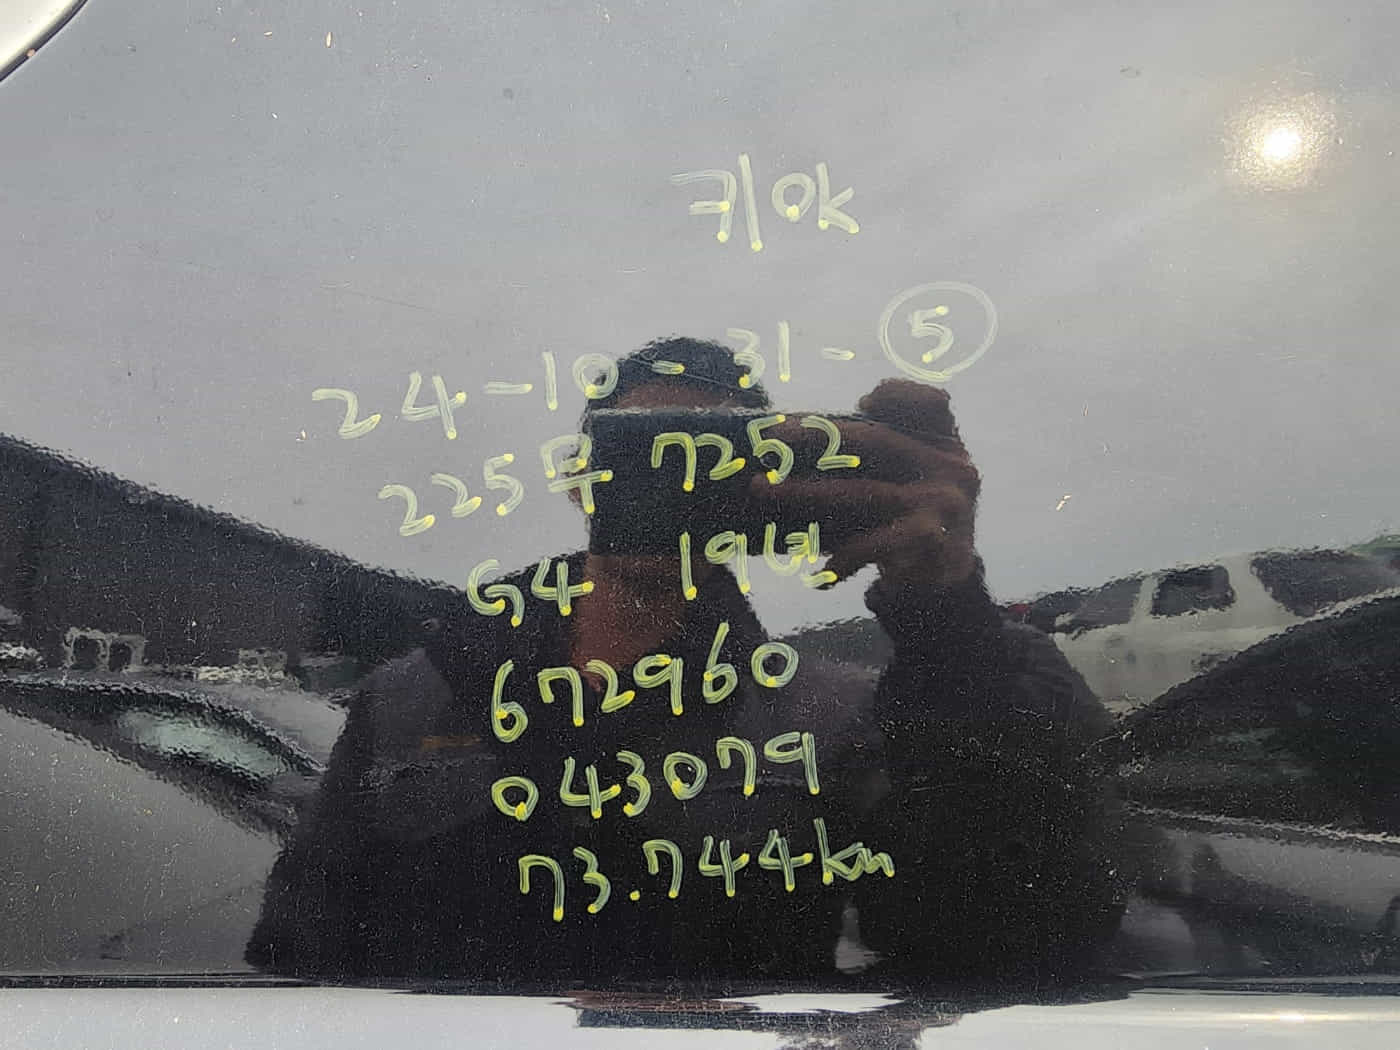 키OK
24-10-31-⑤
225무 7252
G4 19년
672960
043079
73.744km